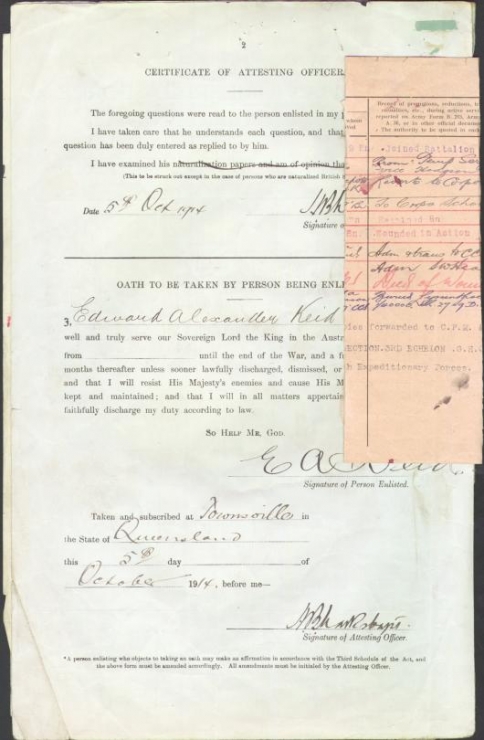 2
CERTIFICATE OF ATTESTING OFFICER.
The foregoing questions were read to the person enlisted in my
I have taken care that he understands each question, and that
question has been duly entered as replied to by him.
I have examined his naturalization papers and am of opinion that
(This to be struck out except in the case of persons who are naturalized British
Date 5th Oct 1914
Signature of
OATH TO BE TAKEN BY PERSON BEING ENLI
3. Edward Alexander Reid
well and truly serve our Sovereign Lord the King in the Austra
from until the End of the War, and a f
months thereafter unless sooner lawfully discharged, dismissed, or
and that I will resist His Majesty's enemies and cause His M
kept and maintained; and that I will in all matters appertain
faithfully discharge my duty according to law.
SO HELP ME, GOD.
E A Reid
Signature of Person Enlisted.
Taken and subscribed at Townsville in
the State of Queensland
this 5th day of
October 1914, before me—
Signature of Attesting Officer.
*A person enlisting who objects to taking an oath may make an affirmation in accordance with the Third Schedule of the Act, and
the above form must be amended accordingly. All amendments must be initialed by the Attesting Officer.
Record of promotions, reductions,
casualties, etc., during active
reported on Army Form B. 213, Army
A. 36, or in other official
The authority to be quoted in each
Joined Battalion
To Corps School
Rejoined Bn.
Wounded in Action
Died of Wounds
forwarded to C.P.R.
SECTION. 3RD ECHELON. G.H.
Expeditionary Forces.